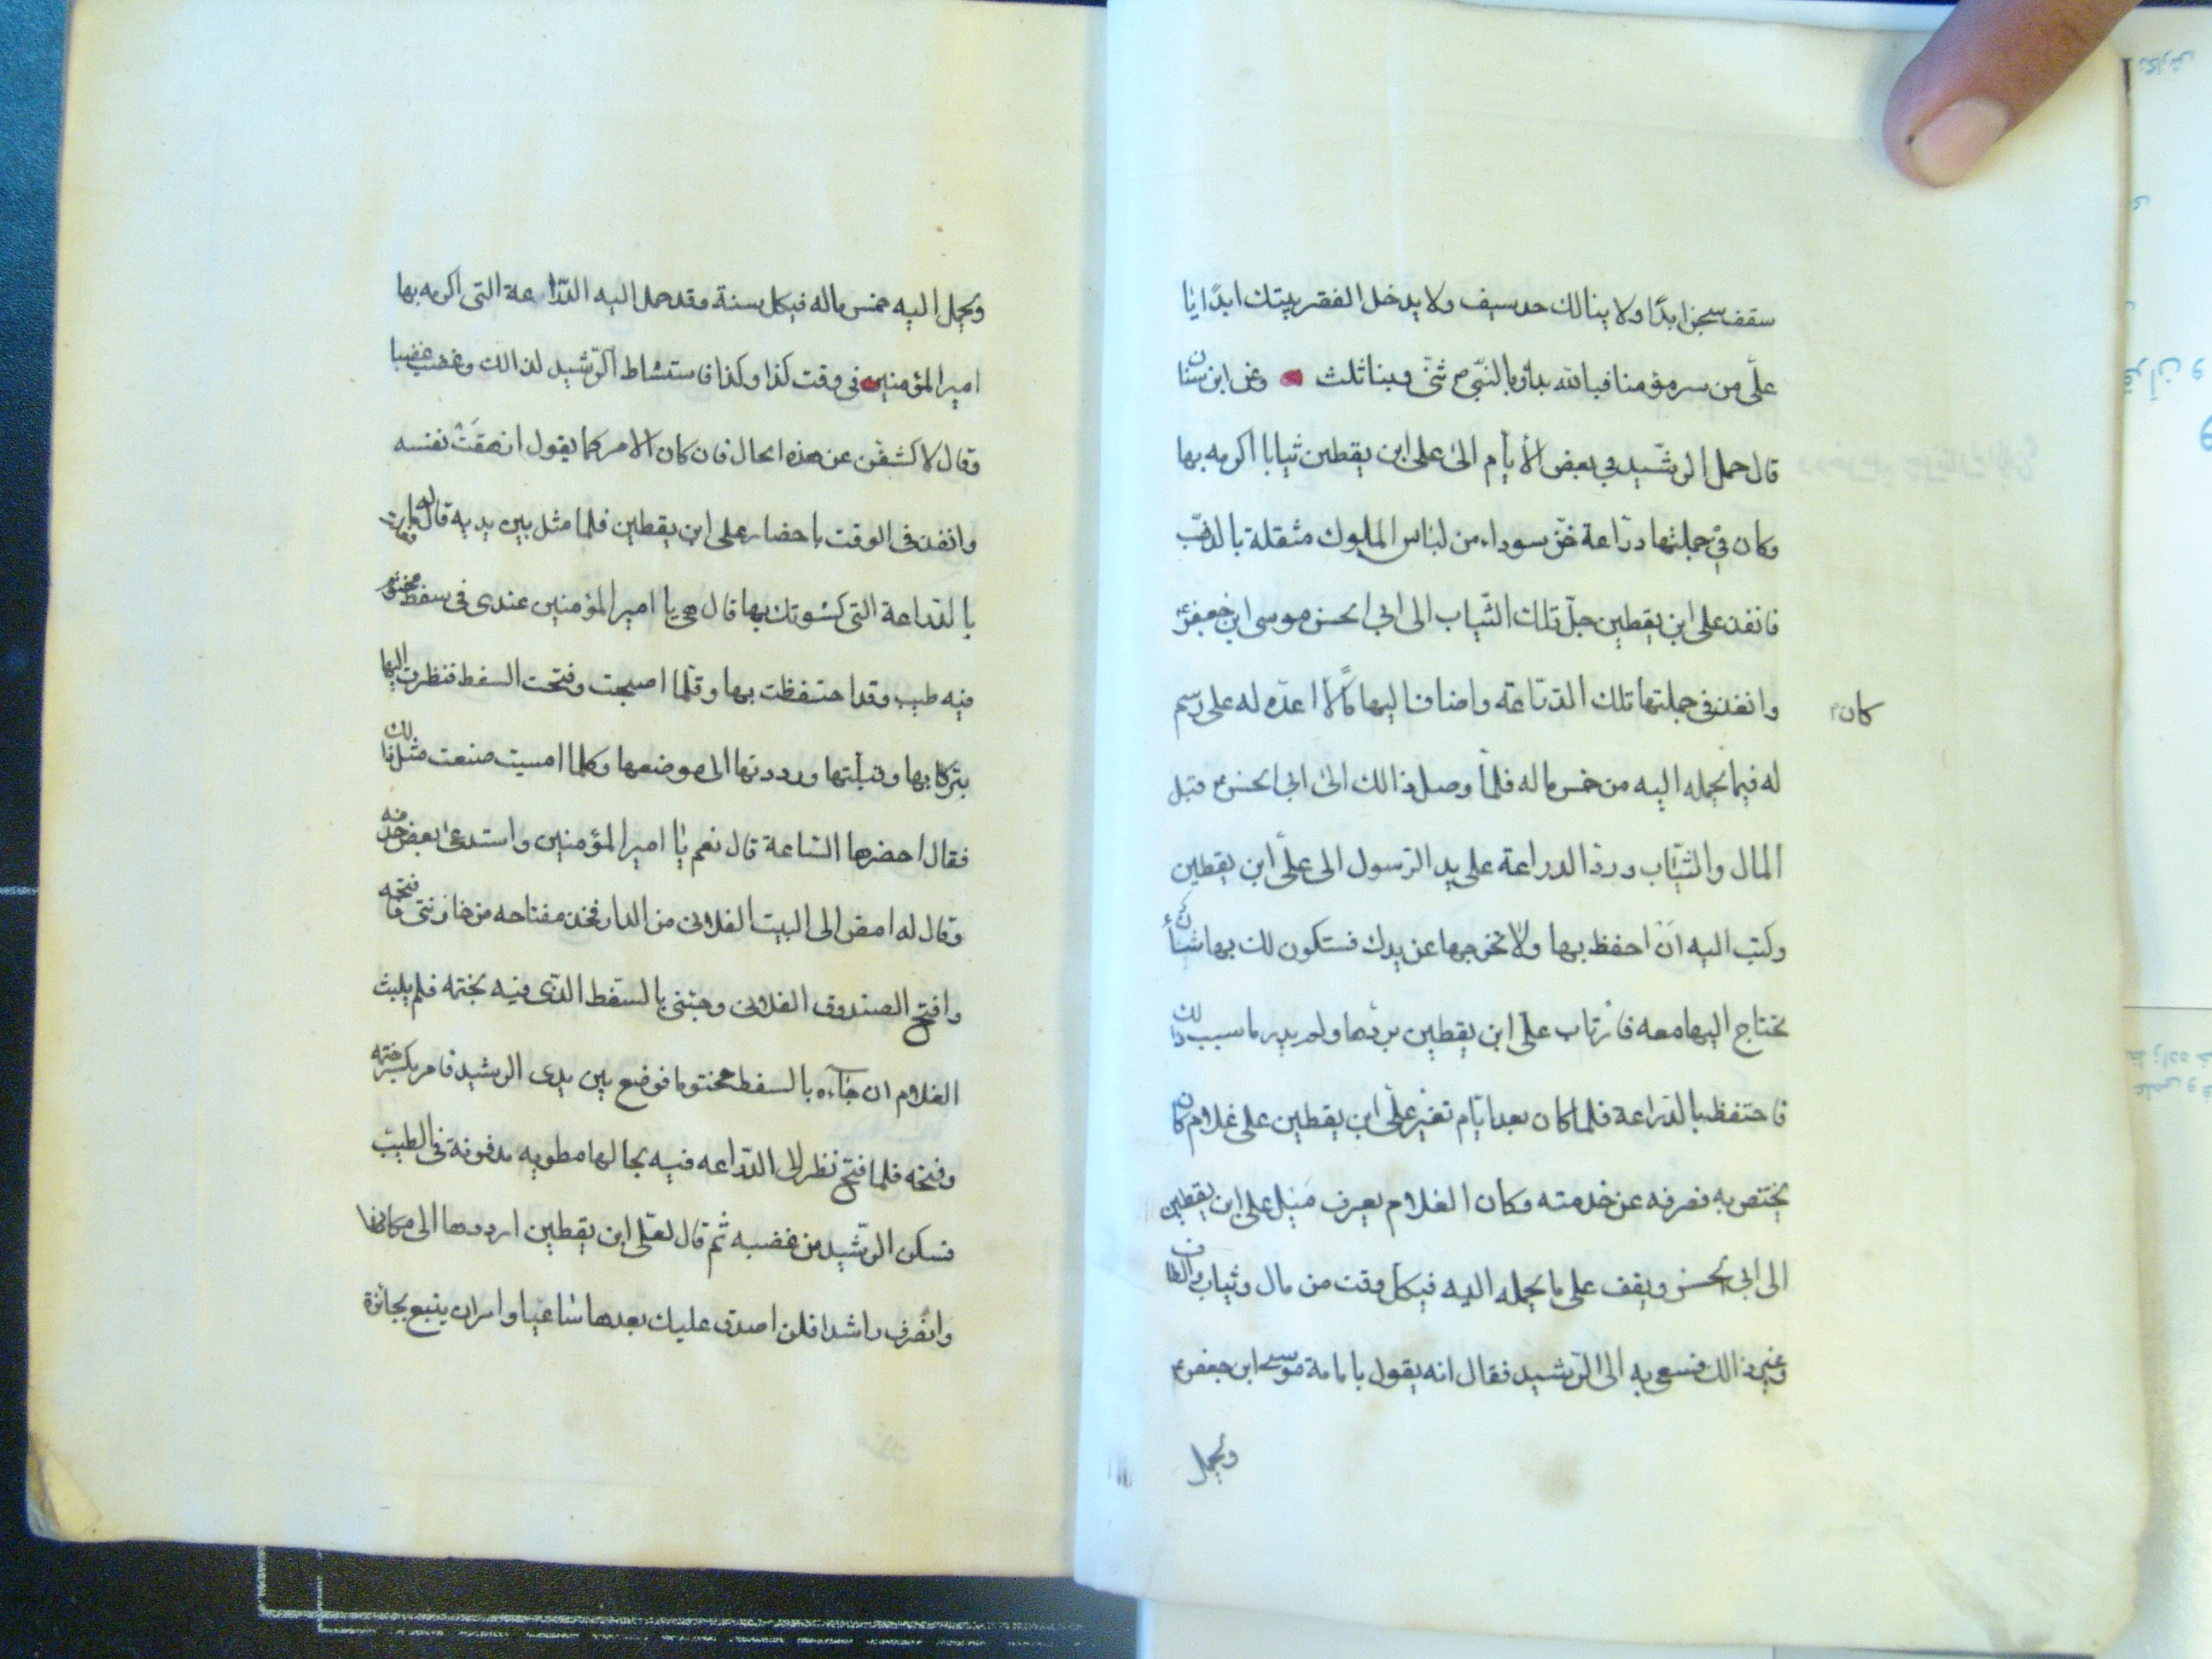 سقف سجن ابدًا ولا ينالك حد سيف ولا يدخل الفقر بيتك ابدًا يا
علّي من سر مؤمنا فبالله بدأ وبالنبّي ص ثنى وبنا ثلث وعن ابن سنان
قال حمل الرشّيد في بعض الأيّام الى على ابن يقطين ثيابا اكرمه بها
وكان في جملتها درّاعة خزّ سوداء من لباس الملوك مثقلة بالذهّب
فانفذ على ابن يقطين جلّ تلك الثّياب الى ابي الحسن موسى ابن جعفر ع
وانفذ في جملتها تلك الدرّاعة واضاف اليها مالًا اعدّه له على رسم
كان
له فيما يحمله اليه من خمس ماله فلما وصل ذالك الى ابي الحسن ع قبل
المال والثيّاب وردّ الدراعة على يد الرّسول الى علّى ابن يقطين
وكتب اليه ان احفظ بها ولا تخرجها عن يدك فستكون لك بها شأن
تحتاج اليها معه فارتاب علّى ابن يقطين بردّها ولم يدر ما سبب ذالك
فاحتفظ بالدّراعة فلما كان بعد ايّام تغيّر علّى ابن يقطين على غلام كان
يختّص به فصرفه عن خدمته وكان الغلام يعرف ميل على ابن يقطين
الى ابي الحسن ويقف على ما يحمله اليه في كلّ وقت من مال وثياب والطاف
وغير ذالك فسعى به الى الرّشيد فقال انه يقول بامامة موسى ابن جعفر ع
ويحمل
ويحمل اليه خمس ماله في كل سنة وقد حمل اليه الدّرّاعة التى اكرمه بها
امير المؤمنين في وقت كذا وكذا فاستشاط الرّشيد لذالك وغضب غضبا
وقال لاكشفّن عن هذه الحال فان كان الامر كما يقول ازهقَتْ نفسه
وانفذ فى الوقت باحضار على ابن يقطين فلما مثل بين يديه قال له ما فعلت
بالدّراعة التى كسوتك بها قال هى يا امير المؤمنين عندى فى سفط مختوم
فيه طيب وقد احتفظت بها وقلّما اصبحت وفتحت السفط فنظرت اليها
تبّركا بها وقبّلتها ورددتها الى موضعها وكلما امسيت صنعت مثل ذالك
فقال احضرها السّاعة قال نعم يا امير المؤمنين واستدعى بعض خدمه
وقال له امض الى البيت الفلانى من الدار فخذ مفتاحه من خازنتى فافتحه
وافتح الصندوق الفلانى وجئنى بالسّفط الذّى فيه بختمه فلم يلبث
الغلام ان جاءه بالسفط مختوما فوضع بين يدى الرشيد فامر بكسر ختمه
وفتحه فلما فتح نظر الى الدّراعه فيه بحالها مطويه مدفونة فى الطيب
فسكن الرّشيد من غضبه ثّم قال لعلّى ابن يقطين ارددها الى مكانها
وانصرف راشدا فلن اصدق عليك بعدها ساعيا وامر ان يتبع بجائزة